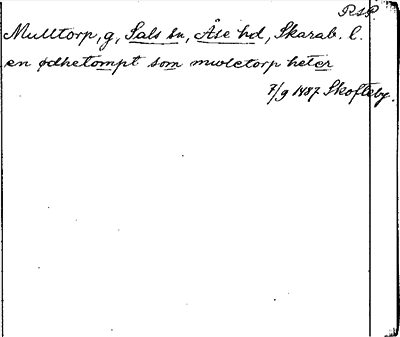 R.A.P.
Mulltorp, g, Sals sn, Åse hd, Skarab. l.
en ødhetompt som mwletorp heter
7/9 1487 Skofteby.